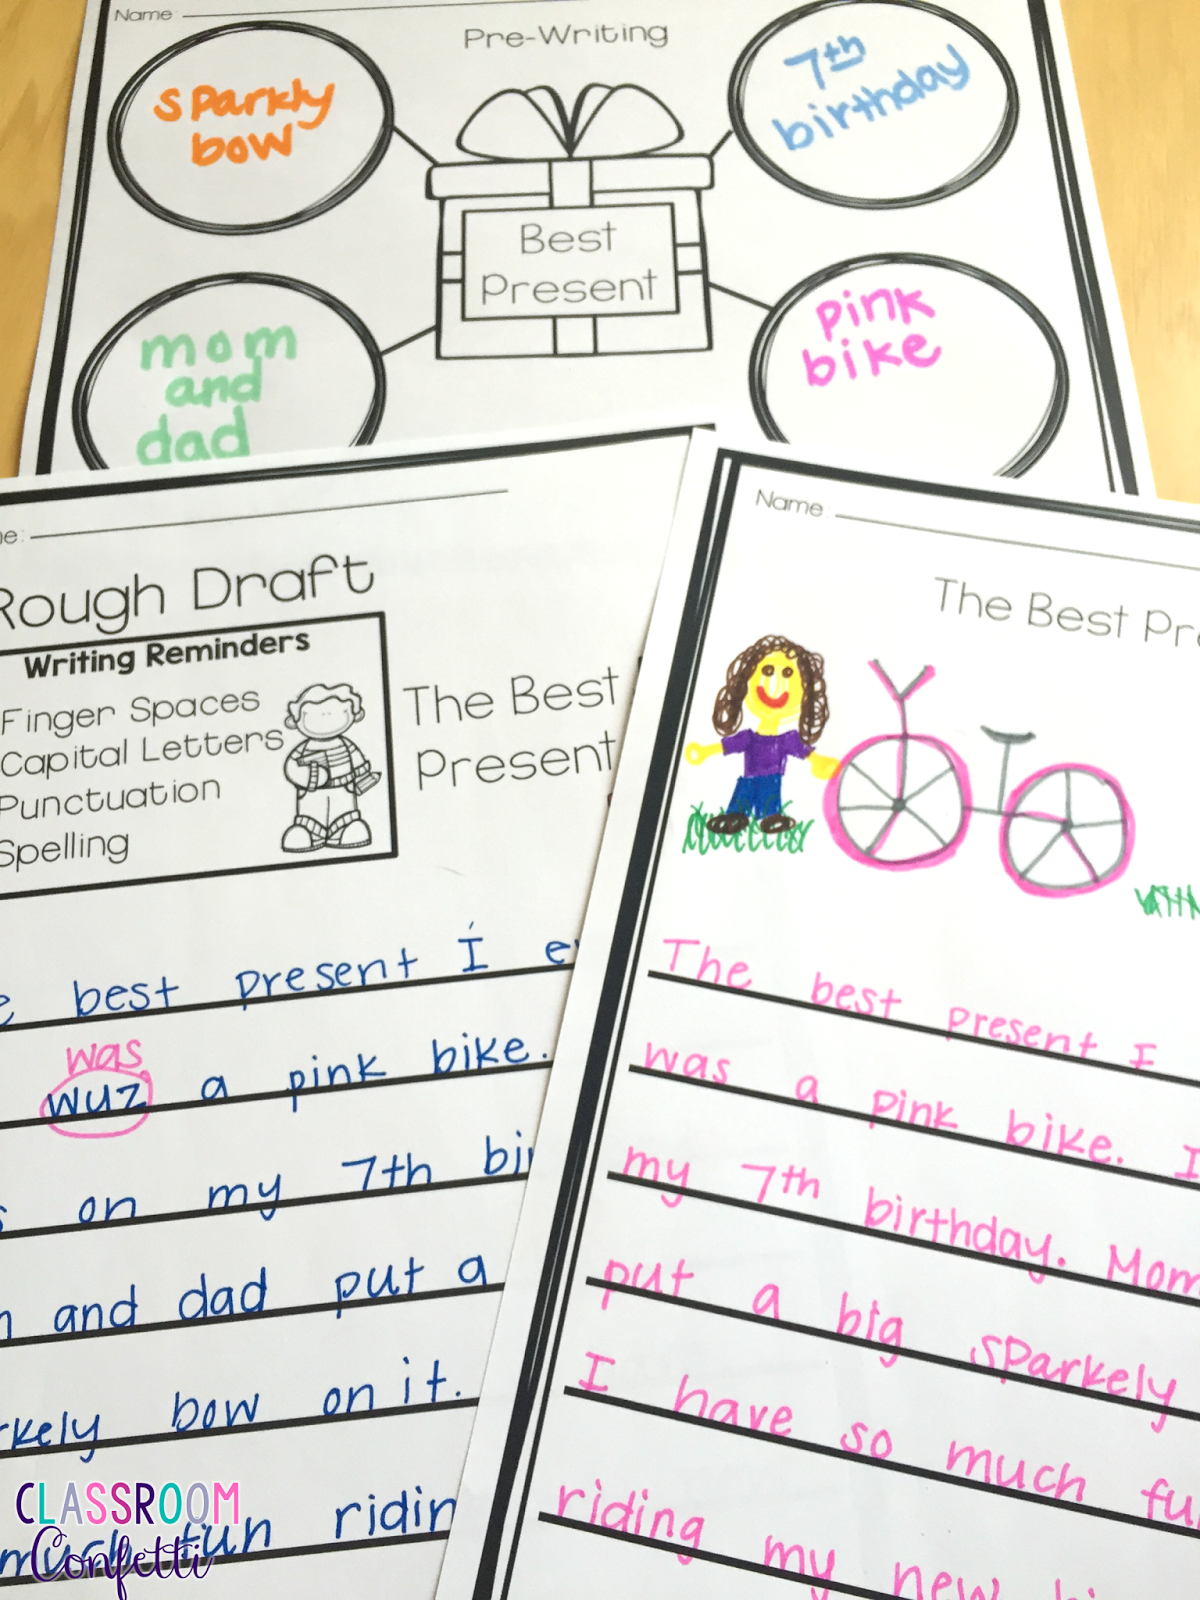 Name:
Pre-Writing
sparkly
bow
7th
birthday
Best
Present
mom
and
dad
pink
bike
Rough Draft
Writing Reminders
Finger Spaces
Capital Letters
Punctuation
Spelling
The Best
Present
best present I
was
wuz a pink bike.
on my 7th
and dad put a
bow on it.
much fun
Name:
The Best
The best present I
was a pink bike. I
my 7th birthday. Mom
put a big sparkely
I have so much
riding my new
CLASSROOM
Confetti